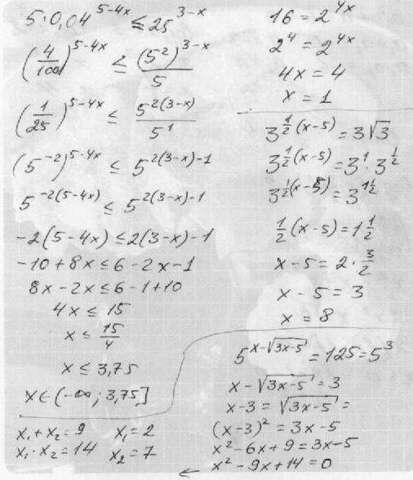 5·0,04^(5-4x) ≤ 25^(3-x)
(4/100)^(5-4x) ≤ (5²)^(3-x)/5
(1/25)^(5-4x) ≤ 5^(2(3-x))/5¹
(5^(-2))^(5-4x) ≤ 5^(2(3-x)-1)
5^(-2(5-4x)) ≤ 5^(2(3-x)-1)
-2(5-4x) ≤ 2(3-x)-1
-10+8x ≤ 6-2x-1
8x-2x ≤ 6-1+10
4x ≤ 15
x ≤ 15/4
x ≤ 3,75
x ∈ (-∞; 3,75]
16 = 2^(4x)
2⁴ = 2^(4x)
4x = 4
x = 1
3^(1/2(x-5)) = 3√3
3^(1/2(x-5)) = 3¹·3^(1/2)
3^(1/2(x-5)) = 3^(1 1/2)
1/2(x-5) = 1 1/2
x-5 = 2·3/2
x-5 = 3
x = 8
5^(x-√(3x-5)) = 125 = 5³
x-√(3x-5) = 3
x-3 = √(3x-5) =
(x-3)² = 3x-5
x²-6x+9 = 3x-5
← x²-9x+14 = 0
x₁+x₂ = 9 x₁ = 2
x₁·x₂ = 14 x₂ = 7